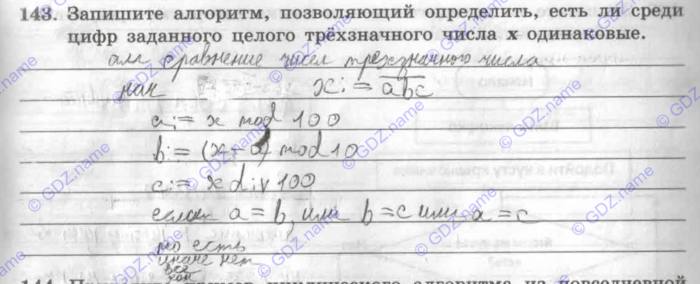 143. Запишите алгоритм, позволяющий определить, есть ли среди
цифр заданного целого трёхзначного числа x одинаковые.
алг сравнение чисел трехзначного числа
нач x := abc
a := x mod 100
b := (x - a) mod 10
c := x div 100
если a = b или b = c или a = c
то есть
иначе нет
все
кон
© GDZ.name